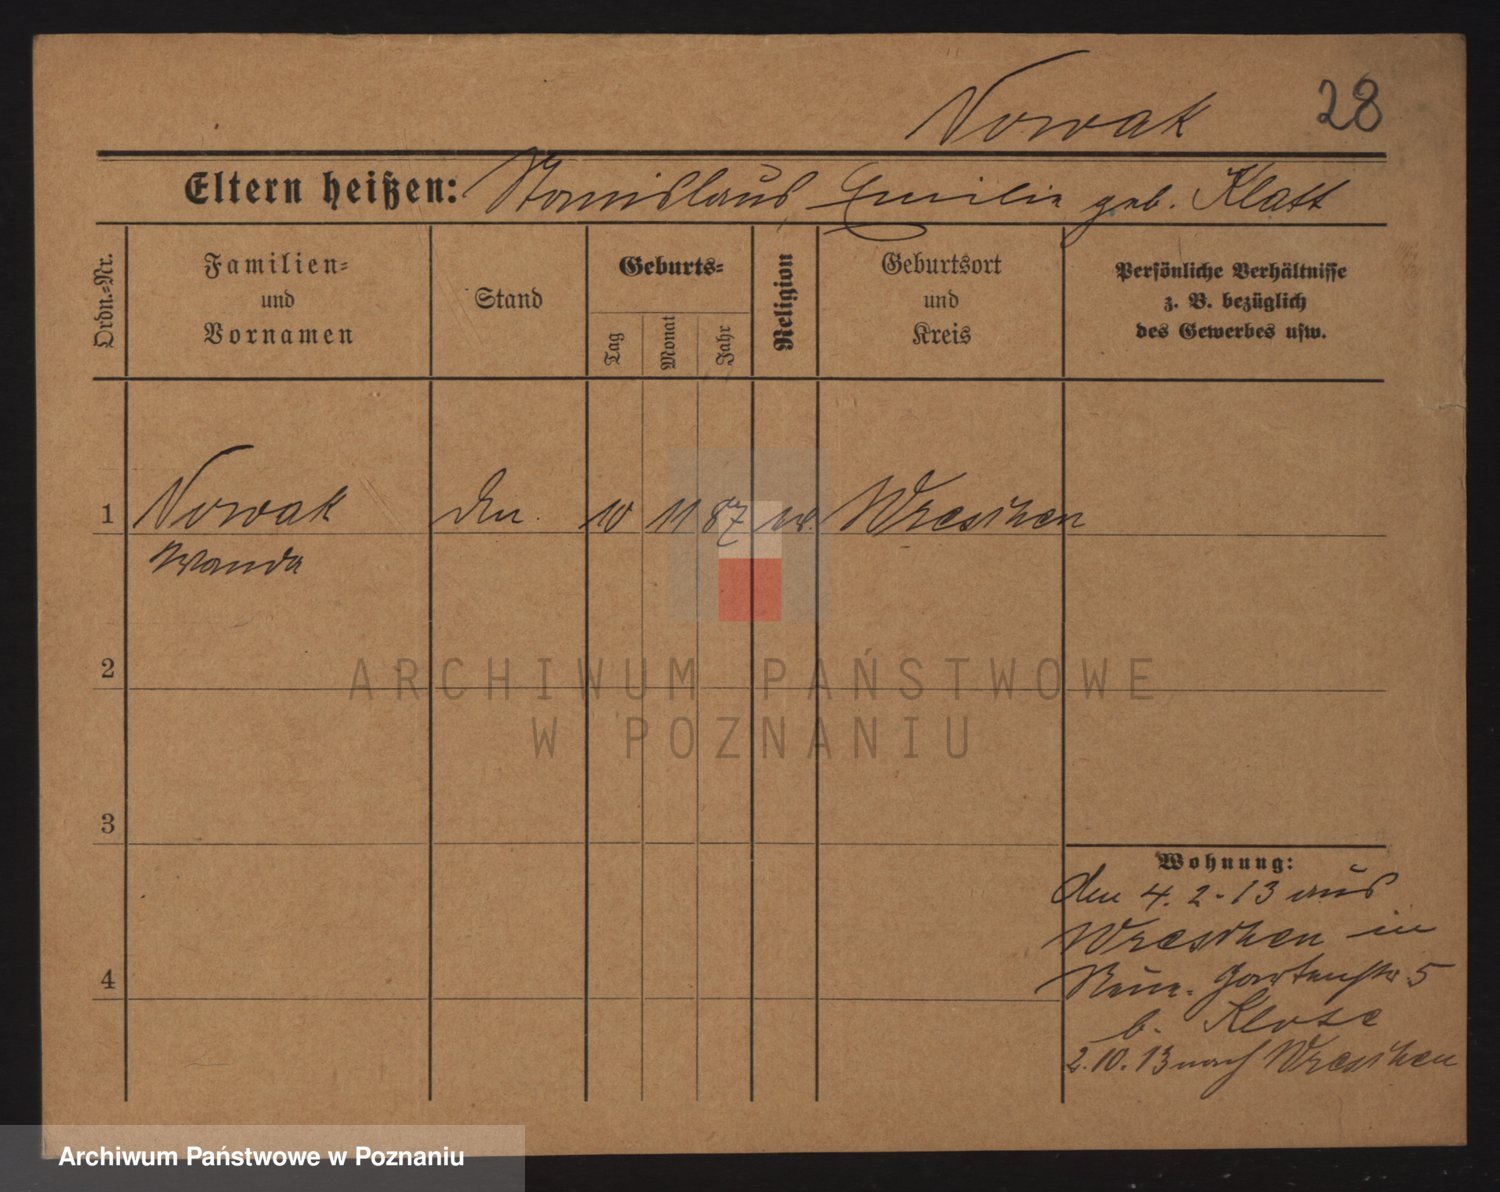 Nowak 28
Eltern heißen: Stanislaus Emilie geb. Klatt
Ordn.-Nr.
Familien-
und
Vornamen
Stand
Geburts-
Tag
Monat
Jahr
Religion
Geburtsort
und
Kreis
Persönliche Verhältnisse
z. B. bezüglich
des Gewerbes usw.
1 Nowak 10 11 87 Wreschen
Wanda
2
3
4
Wohnung:
den 4. 2. 13 aus
Wreschen in
Gartenstr 5
b. Klose
2. 10. 13 nach Wreschen
ARCHIWUM PAŃSTWOWE
W POZNANIU
Archiwum Państwowe w Poznaniu